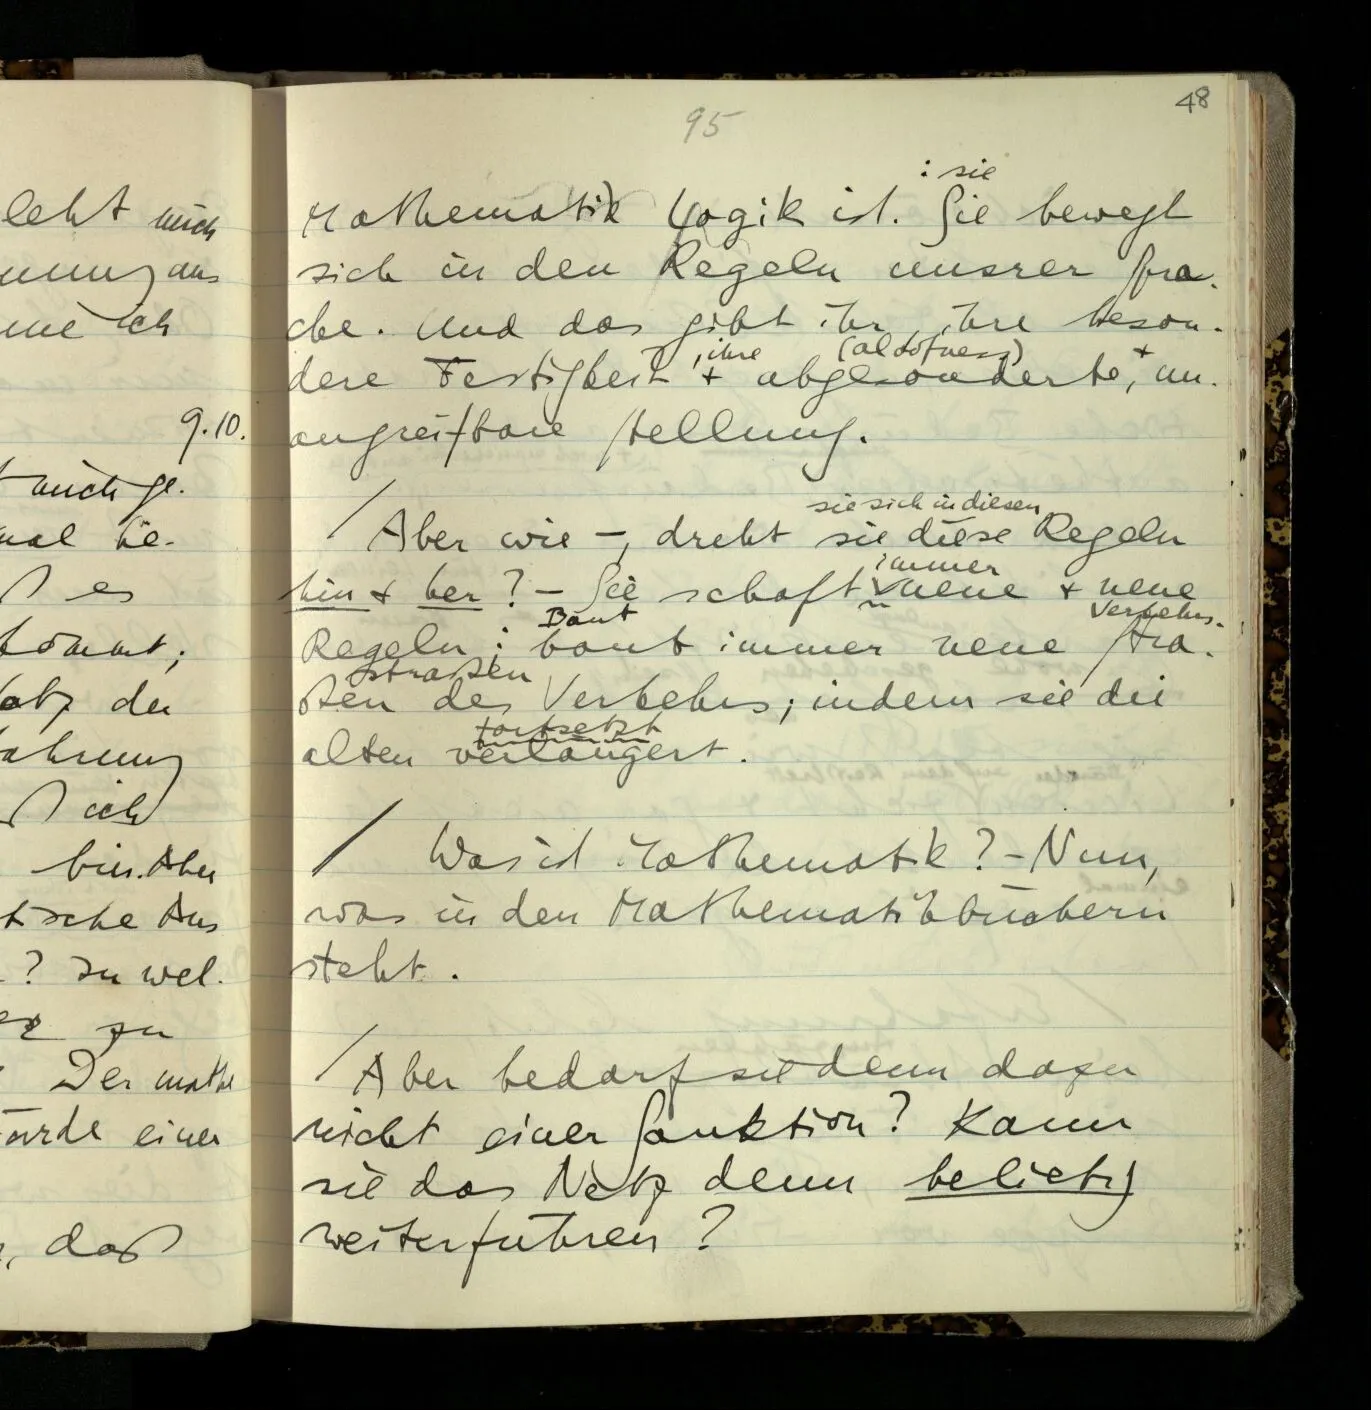 leht mich
ich
9.10.
mich ge-
mal
es
kommt;
der
ich
bin. Aber
tsche Aus
? In wel-
zu
Der mathe
einer
, daß
48
95
: sie
Mathematik Logik ist. Sie bewegt
sich in den Regeln unsrer Spra-
che. Und das gibt ihr, ihre beson-
, ihre (aloofness) +
dere Festigkeit + abgesonderte, un-
angreifbare Stellung.
/ sie sich in diesen
Aber wie –, dreht sie diese Regeln
immer
hin + her? – Sie schaft neue + neue
Baut Verkehrs-
Regeln; baut immer neue Stra-
straßen
ßen des Verkehrs; indem sie die
fortsetzt
alten verlängert.
/ Was ist Mathematik? – Nun,
was in den Mathematikbüchern
steht.
/ Aber bedarf sie denn dazu
nicht einer Sanktion? Kann
sie das Netz denn beliebig
weiterführen?